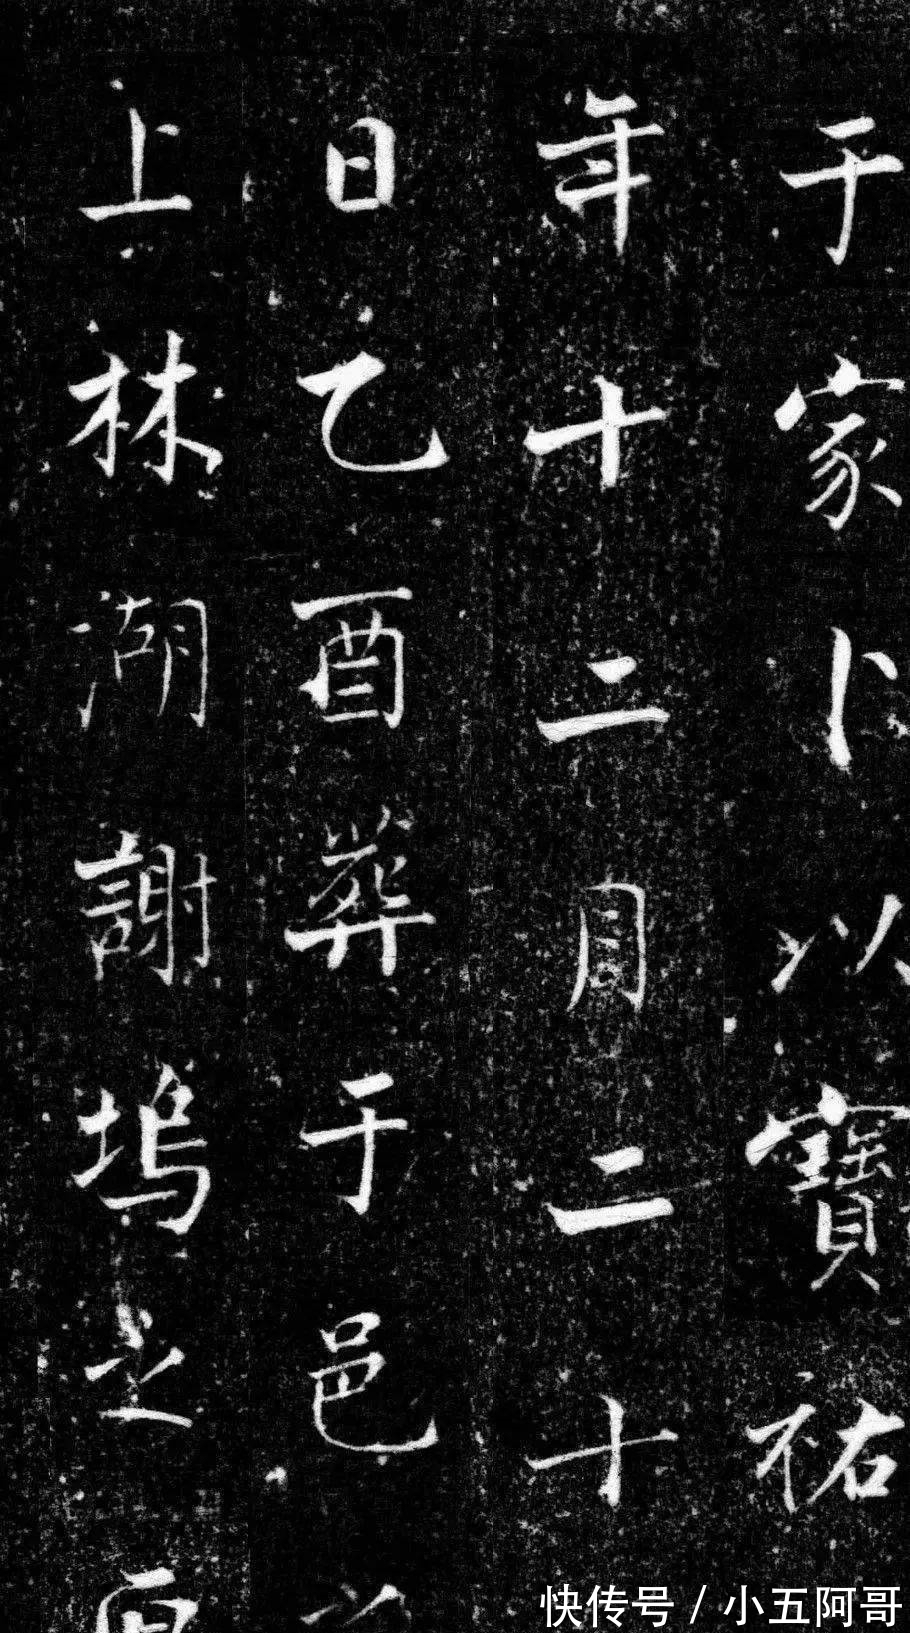 于家卜以寶祐
年十二月二十
日乙酉葬于邑
上林湖謝塢之
快传号 / 小五阿哥